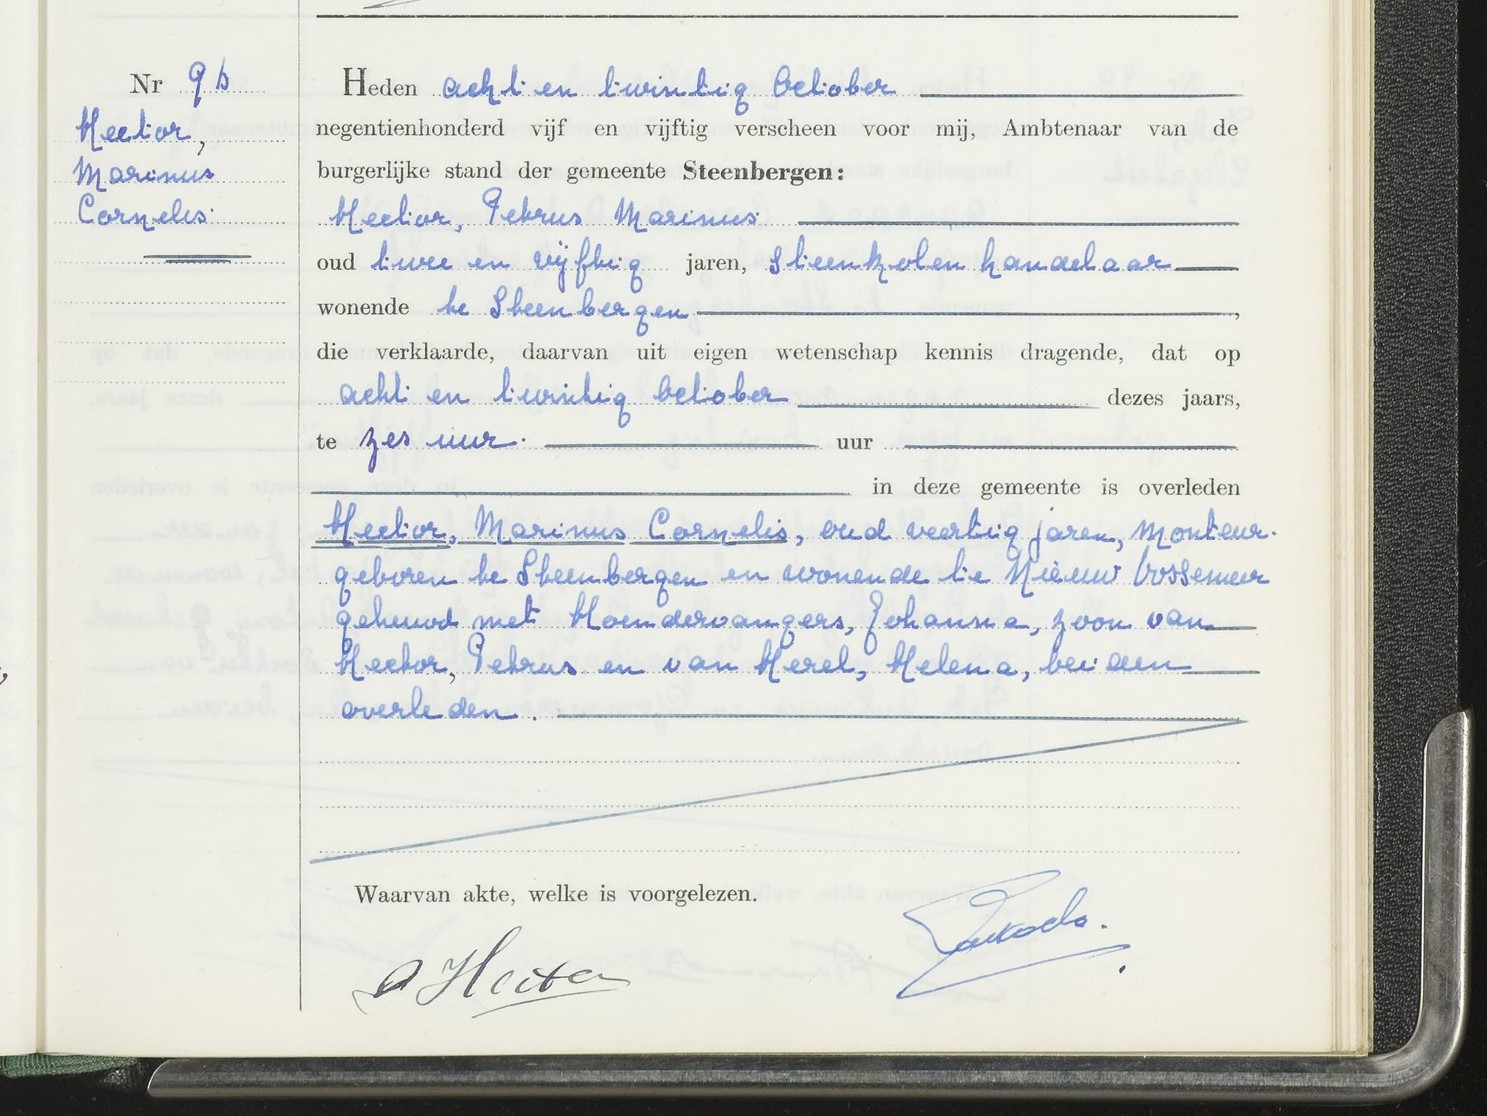 Nr 96
Hector,
Marinus
Cornelis.
Heden acht en twintig October
negentienhonderd vijf en vijftig verscheen voor mij, Ambtenaar van de
burgerlijke stand der gemeente Steenbergen:
Hector, Petrus Marinus
oud twee en vijftig jaren, steenkolenhandelaar
wonende te Steenbergen,
die verklaarde, daarvan uit eigen wetenschap kennis dragende, dat op
acht en twintig October dezes jaars,
te zes uur. uur
in deze gemeente is overleden
Hector, Marinus Cornelis, oud veertig jaren, monteur.
geboren te Steenbergen en wonende te Nieuw Vossemeer
gehuwd met Hoendervangers, Johanna, zoon van
Hector, Petrus en van Merel, Helena, beiden
overleden.
Waarvan akte, welke is voorgelezen.
Hector